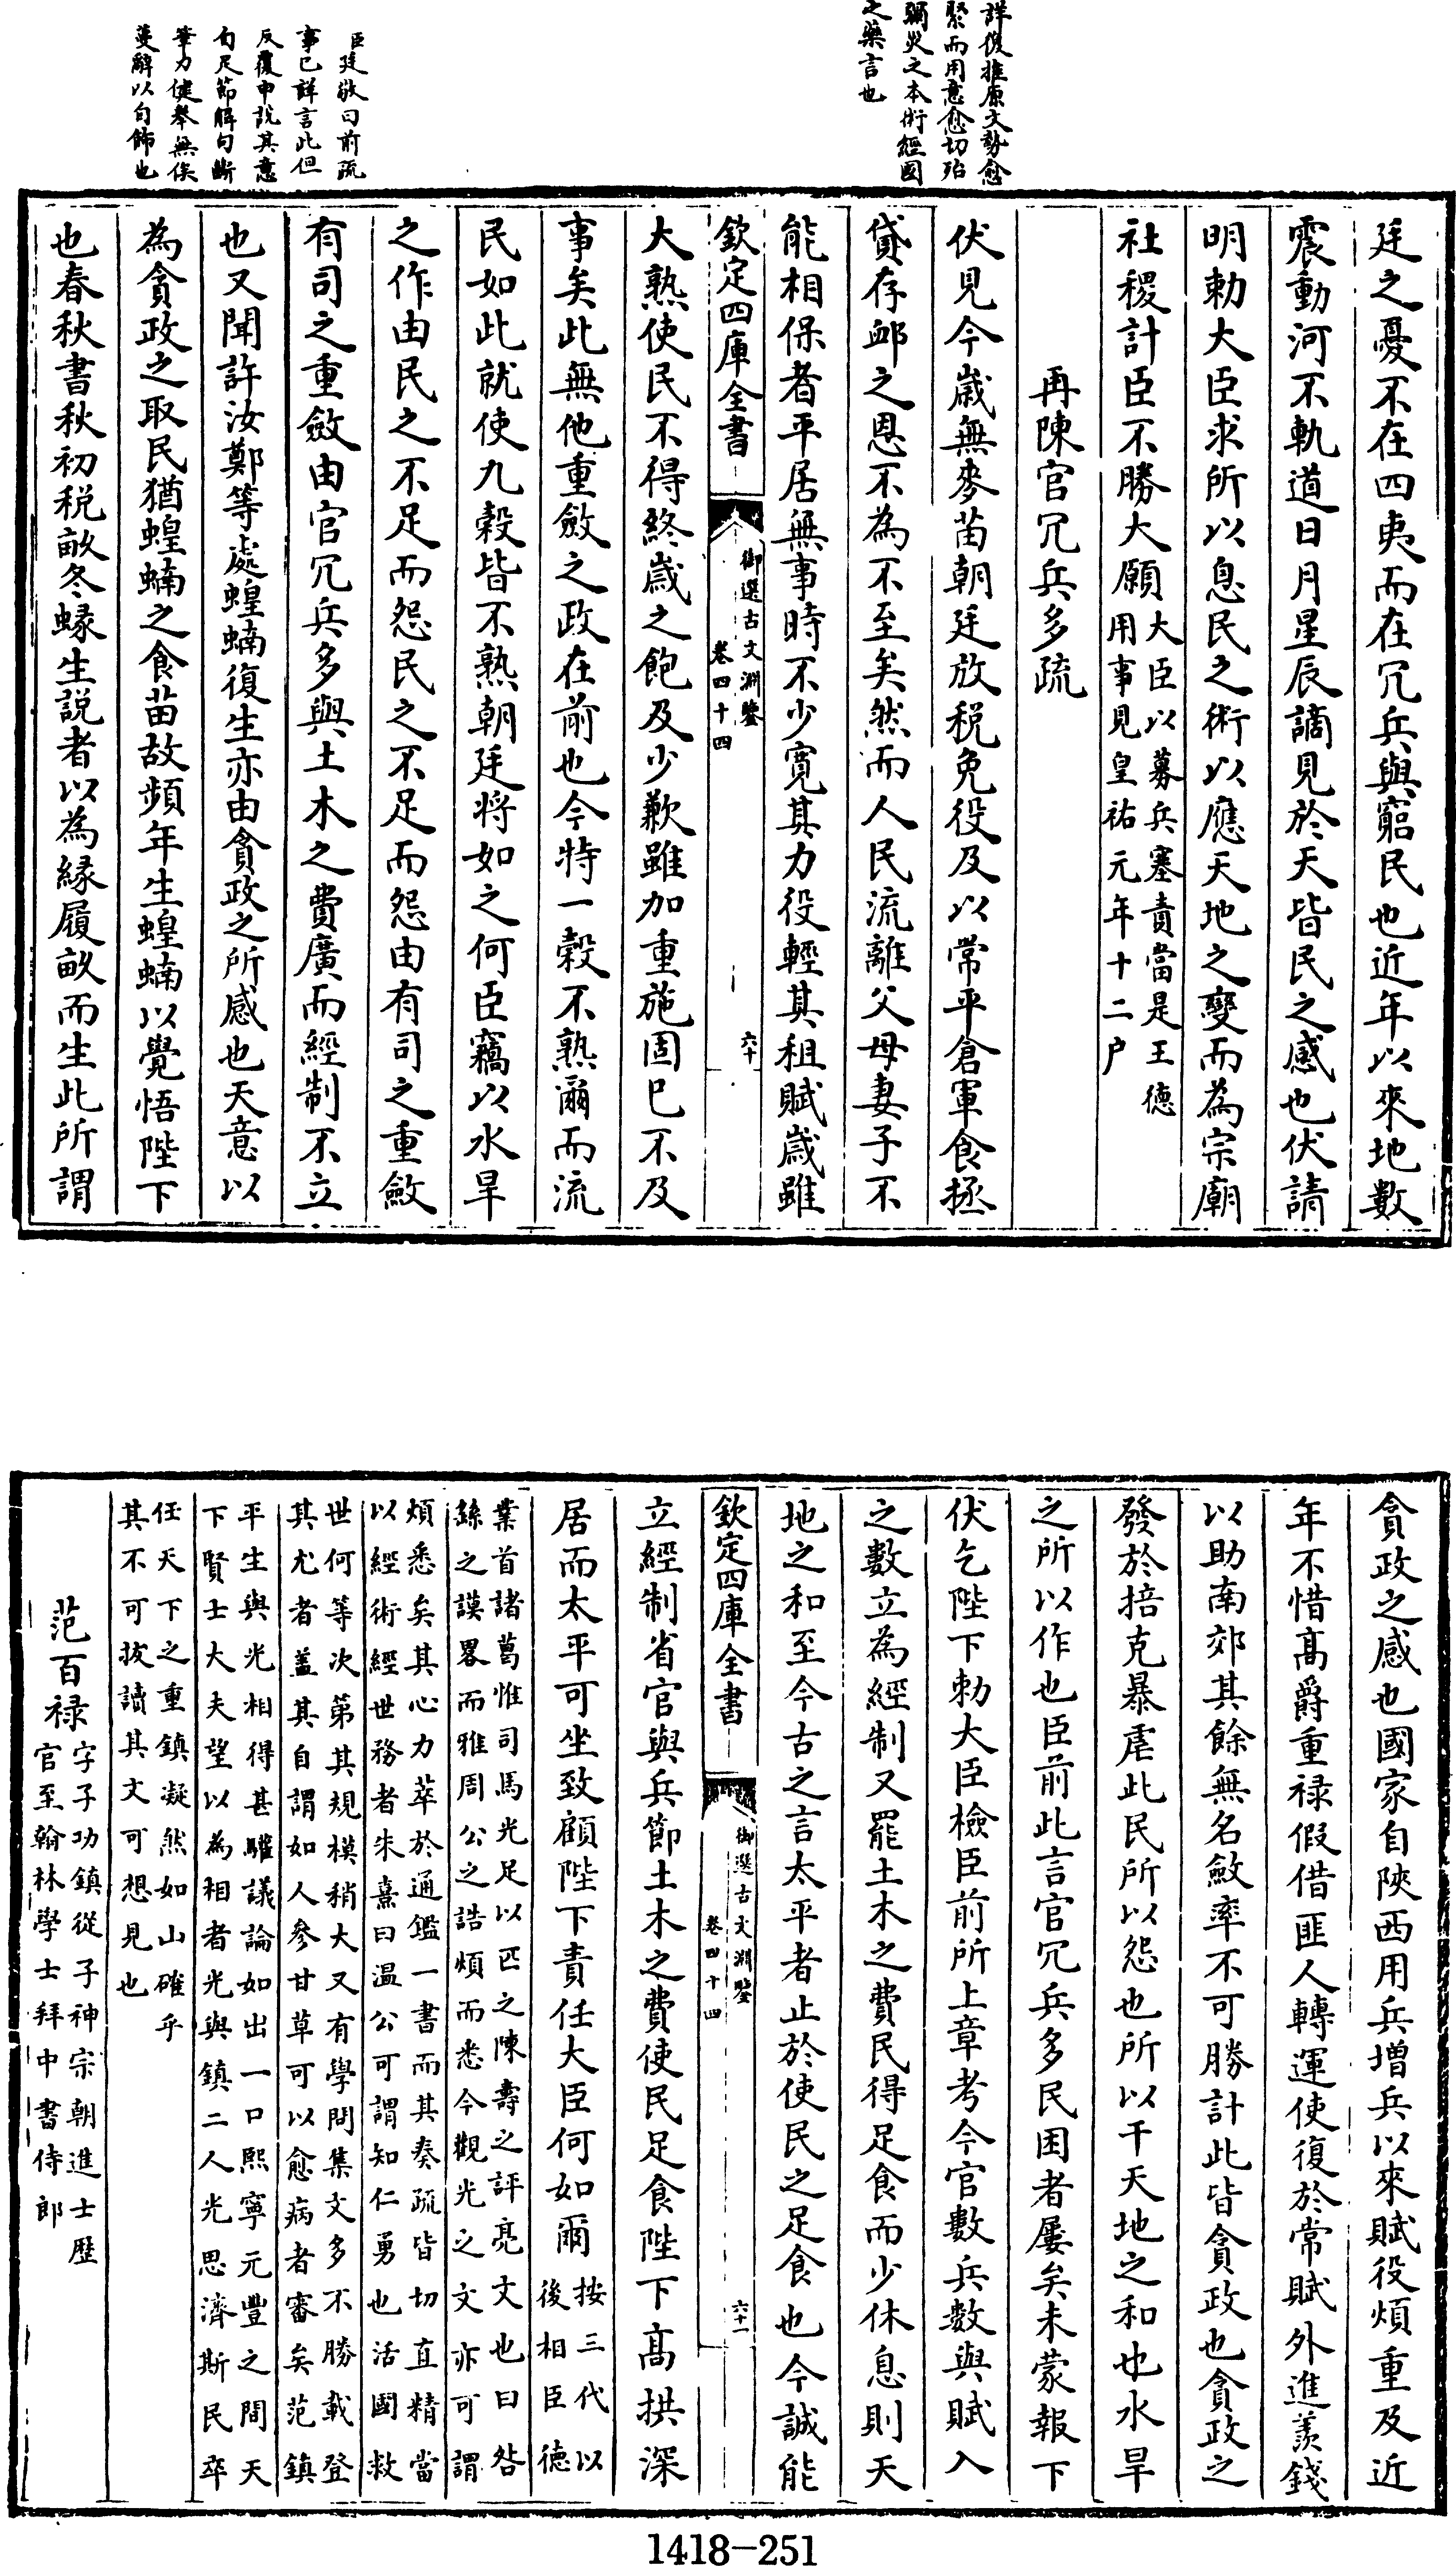 詳後推原文勢愈
緊而用意愈切殆
弭災之本術經國
之藥言也
臣廷敬曰前疏
事已詳言此但
反覆申說其意
句足節解句斷
筆力健舉無俟
蔓辭以自飾也
廷之憂不在四夷而在冗兵與窮民也近年以來地數
震動河不軌道日月星辰謫見於天皆民之感也伏請
明勅大臣求所以息民之術以應天地之變而為宗廟
社稷計臣不勝大願大臣以募兵塞責當是王德
用事見皇祐元年十二户
再陳官冗兵多疏
伏見今歳無麥苗朝廷放税免役及以常平倉軍食拯
貸存卹之恩不為不至矣然而人民流離父母妻子不
能相保者平居無事時不少寛其力役輕其租賦歳雖
欽定四庫全書
御選古文淵鑒
卷四十四
六十
大熟使民不得終歳之飽及少歉雖加重施固已不及
事矣此無他重斂之政在前也今特一穀不熟爾而流
民如此就使九穀皆不熟朝廷将如之何臣竊以水旱
之作由民之不足而怨民之不足而怨由有司之重斂
有司之重斂由官冗兵多與土木之費廣而經制不立
也又聞許汝鄭等處蝗蝻復生亦由貪政之所感也天意以
為貪政之取民猶蝗蝻之食苗故頻年生蝗蝻以覺悟陛下
也春秋書秋初税畝冬蝝生説者以為緣履畝而生此所謂
貪政之感也國家自陝西用兵増兵以來賦役煩重及近
年不惜髙爵重禄假借匪人轉運使復於常賦外進羨錢
以助南郊其餘無名斂率不可勝計此皆貪政也貪政之
發於掊克暴虐此民所以怨也所以干天地之和也水旱
之所以作也臣前此言官冗兵多民困者屢矣未蒙報下
伏乞陛下勅大臣檢臣前所上章考今官數兵数與賦入
之數立為經制又罷土木之費民得足食而少休息則天
地之和至今古之言太平者止於使民之足食也今誠能
欽定四庫全書
御選古文淵鑒
卷四十四
六十一
立經制省官與兵節土木之費使民足食陛下髙拱深
居而太平可坐致顧陛下責任大臣何如爾按三代以
後相臣德
業首諸葛惟司馬光足以匹之陳壽之評亮文也曰咎
繇之謨畧而雅周公之誥煩而悉今觀光之文亦可謂
煩悉矣其心力萃於通鑑一書而其奏疏皆切直精當
以經術經世務者朱熹曰温公可謂知仁勇也活國救
世何等次第其規模稍大又有學問集文多不勝載登
其尤者葢其自謂如人參甘草可以愈病者審矣范鎮
平生與光相得甚驩議論如出一口熙寧元豐之間天
下賢士大夫望以為相者光與鎮二人光思濟斯民卒
任天下之重鎮凝然如山確乎
其不可拔讀其文可想見也
范百禄字子功鎮從子神宗朝進士歴
官至翰林學士拜中書侍郎
1418—251